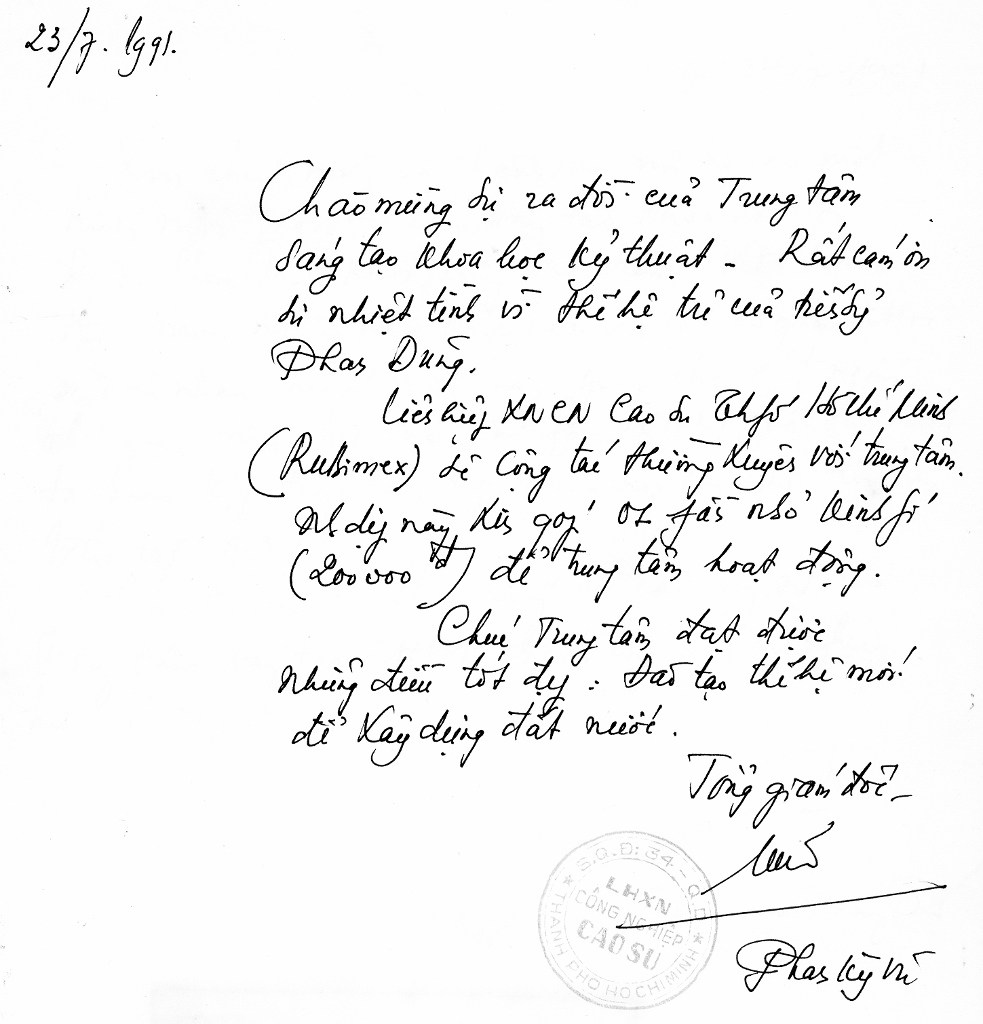 23/7. 1991.
Chào mừng sự ra đời của Trung tâm
sáng tạo khoa học kỹ thuật - Rất cám ơn
sự nhiệt tình vì thế hệ trẻ của tiến sỹ
Phan Dũng.
Liên hiệp XNCN Cao su Th fố Hồ Chí Minh
(Rubimex) sẽ cộng tác thường xuyên với trung tâm.
Nh dịp này xin góp 01 fần nhỏ kinh fí
(200000đ) để trung tâm hoạt động.
Chúc Trung tâm đạt được
những điều tốt đẹp : Đào tạo thế hệ mới
để xây dựng đất nước.
Tổng giám đốc -
S.G.Đ: 34 - Q.Đ
LHXN
CÔNG NGHIỆP
CAO SU
THÀNH PHỐ HỒ CHÍ MINH
Phan Kỳ